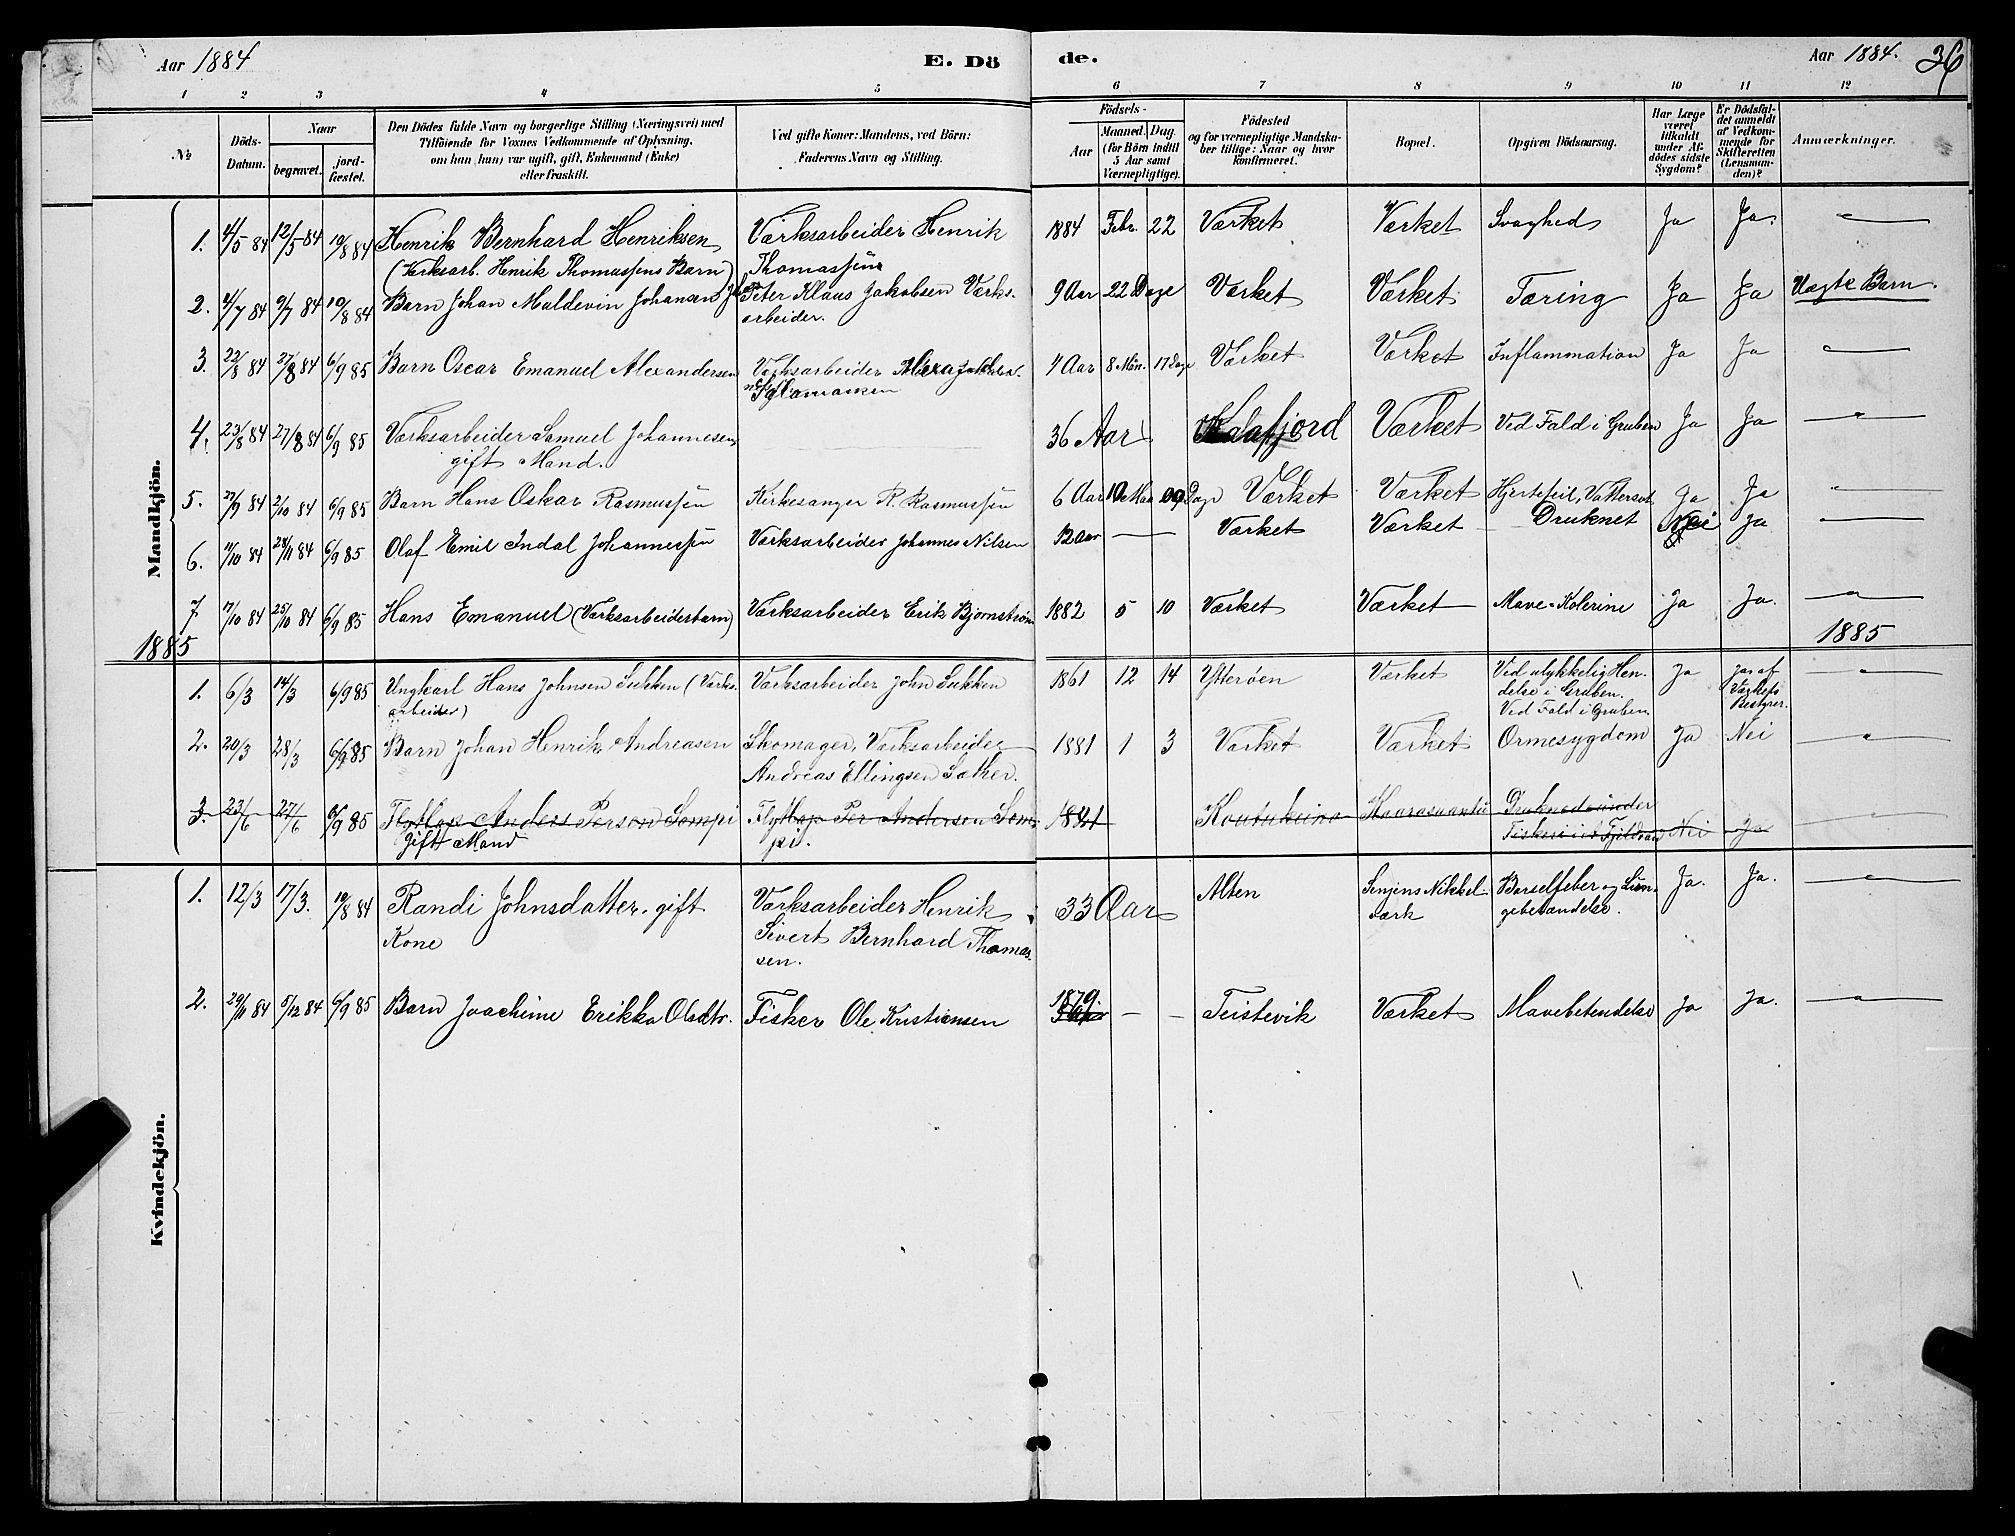 Aar 1884
E. Dö
de.
Aar 1884.
36
1 2 3 4 5 6 7 8 9 10 11 12
№
Döds-
Datum.
Naar
begravet.
jord-
fæstet.
Den Dödes fulde Navn og borgerlige Stilling (Næringsvei) med
Tilföiende for Voxnes Vedkommende af Oplysning,
om han (hun) var ugift, gift, Enkemand (Enke)
eller fraskilt.
Ved gifte Koner: Mandens, ved Börn:
Faderens Navn og Stilling.
Födsels-
Aar
Maaned. Dag.
(for Börn indtil
5 Aar samt
Værnepligtige).
Födested
og for værnepligtige Mandska-
ber tillige: Naar og hvor
konfirmeret.
Bopæl.
Opgiven Dödsaarsag.
Har Læge
været
tilkaldt
under Af-
dödes sidste
Sygdom?
Er Dödsfal-
det anmeldt
af Vedkom-
mende for
Skifteretten
(Lensman-
den)?
Anmærkninger.
Mandkjön.
1. 4/5 84 12/5 84 10/8 84 Henrik Bernhard Henriksen Værksarbeider Henrik 1884 Febr. 22 Værket Værket Svaghed Ja Ja.
(Værksarb. Henrik Thomassens Barn) Thomassen
2. 4/7 84 9/7 84 10/8 84 Barn Johan Maldevin Johansen Peter Klaus Jakobsen Værks- 9 Aar 22 Dage Værket Værket Tæring Ja Ja Uægte Barn.
arbeider.
3. 22/8 84 27/8 84 6/9 85 Barn Oscar Emanuel Alexandersen Værksarbeider 4 Aar 8 Mdn. 17 Dage Værket Værket Inflammation Ja Ja
4. 23/8 84 27/8 84 6/9 85 Værksarbeider Samuel Johannesen 36 Aar Værket Ved Fald i Gruben Ja Ja
gift Mand.
5. 27/9 84 2/10 84 6/9 85 Barn Hans Oskar Rasmussen Kirkesanger R. Rasmussen 6 Aar Dage Værket Værket Hjertefeil, Vattersot Ja Ja
6. 11/10 84 28/11 84 6/9 85 Olaf Emil Indal Johannessen Værksarbeider Johannes Nilsen 12 Aar Værket Værket Druknet Nei Ja
7 17/10 84 25/10 84 6/9 85 Hans Emanuel (Værksarbeiderbarn) Værksarbeider Erik Bjørnstrøm 1882 5 10 Værket Værket Mave-Kolerine Ja Ja.
1885
1885
1. 6/3 14/3 6/9 85 Ungkarl Hans Johnsen Sukken (Værks- Værksarbeider John Sukken 1861 12 14 Ytterøen Værket Ved ulykkelig Hen- Ja Ja af
arbeider) delse i Gruben. Værkets
Ved Fald i Gruben. Bestyrer.
2. 20/3 28/3 6/9 85 Barn Johan Henrik Andreasen Skomager, Værksarbeider 1881 1 3 Værket Værket Ormesygdom Ja Nei
Andreas Ellingsen Sæther.
3. 23/6 27/6 6/9 85 Flytlap Anders Person Sompi Flytlap Per Andersen Som- Koutukeino Druknede under
gift Mand pi. Fiskeri i et Fjeldvand Nei Ja
Kvindekjön.
1. 12/3 17/3. 10/8 84 Randi Johnsdatter, gift Værksarbeider Henrik 33 Aar Alten Senjens Nikkel- Barselfeber og Lun- Ja. Ja.
Kone Sivert Bernhard Thomas- værk gebetændelse.
sen.
2. 29/11 84 5/12 84 6/9 85 Barn Joachime Erikka Olsdtr. Fisker Ole Kristiansen 1879. Teistevik Værket Mavebetendelse Ja Ja.